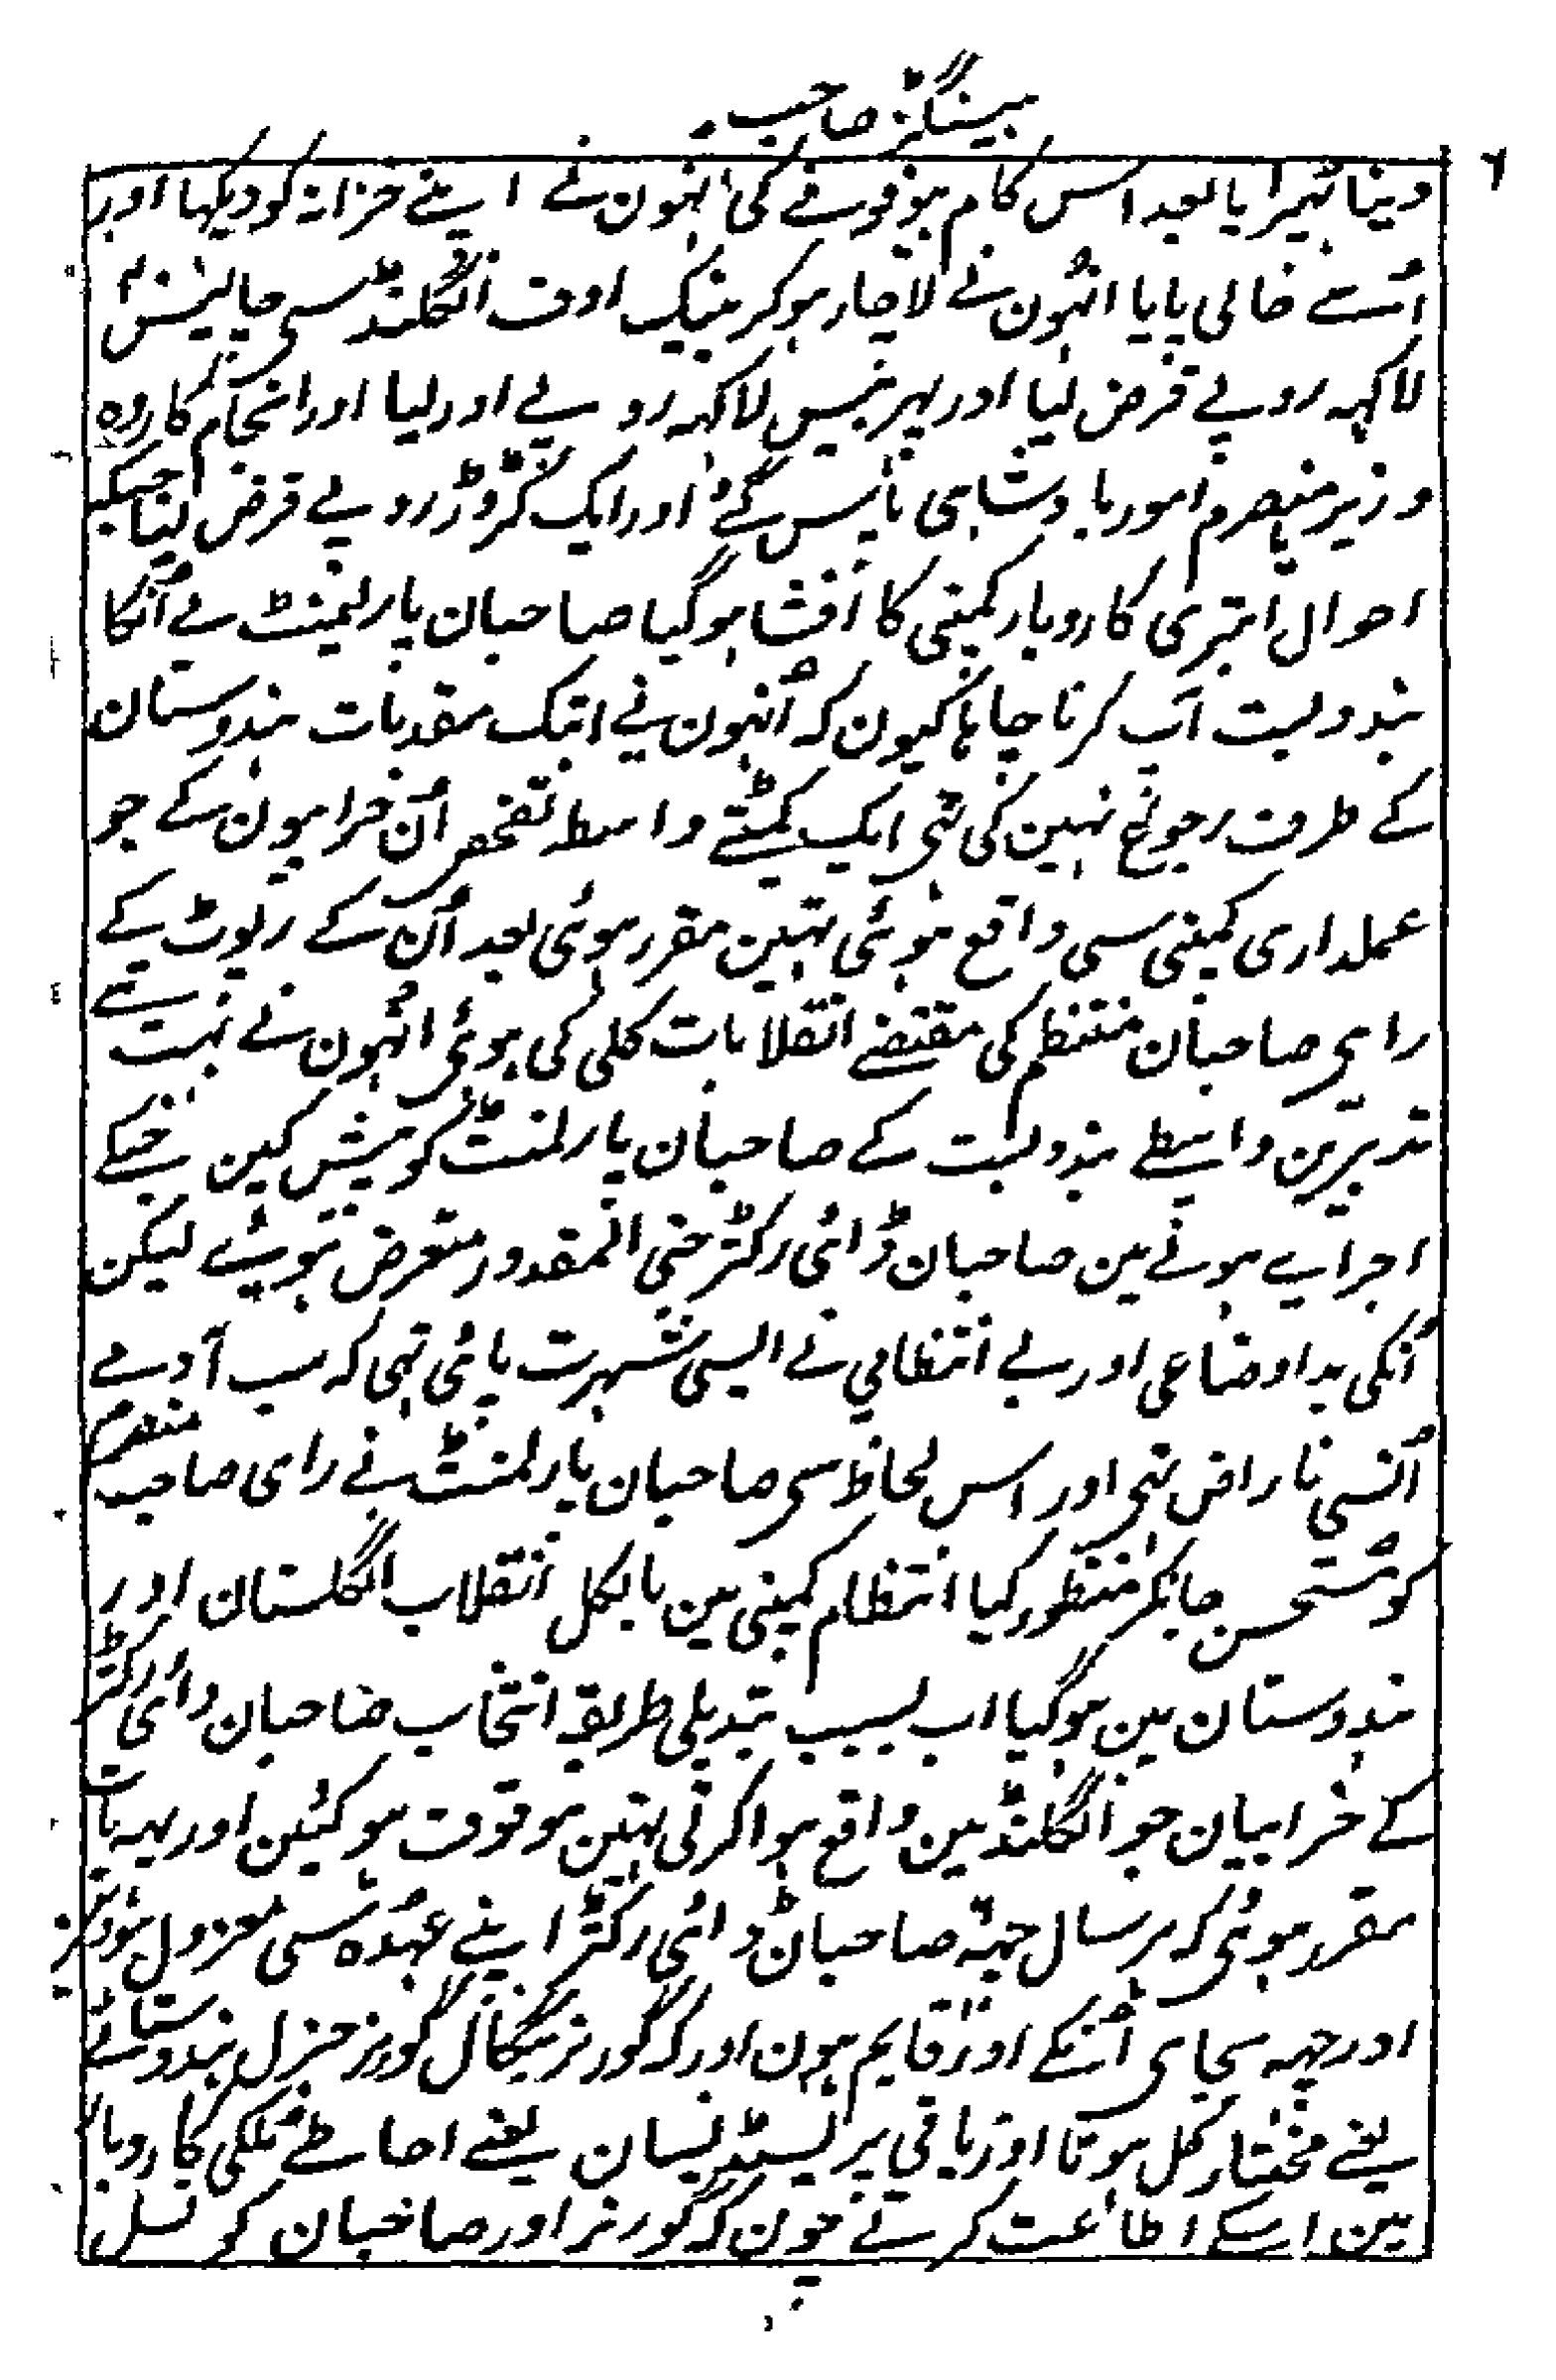 ہیسٹنگز صاحب
٦
دینا ٹہیرایا بعد اس کام بیوقوفے کی انہون نے اپنے خزانہ کو دیکہا اور
اُسے خالی پایا انہُون نے لاچار ہوکر بنیک اوف انگلنڈ سی چالیس
لاکہہ روپے قرض لیا اور پہر بیس لاکہہ روپے اور لیا اور انجام کار وہ
وزیر منصرم امور بادشاہی پاس گئے اور ایک کڑوڑ روپے قرض لینا جبکہ
احوال ابتری کاروبار کمپنی کا افشا ہوگیا صاحبان پارلیمنٹ نے اُنکا
بندوبست آپ کرنا چاہا کیون کہ اُنہون نے ابتک مقدمات ہندوستان
کے طرف رجوع نہین کی تہی ایک کمٹے واسطہ تفحص اُن خرابیون کے جو
عملداری کمپنی سی واقع ہوئی تہین مقرر ہوئی بعد اُن کے رپوٹ کے
رای صاحبان منتظم کی مقتضے انقلابات کلی کی ہوئی انہُون نے بہت سے
تدبیرین واسطے بندوبست کے صاحبان پارلمنٹ کو پیش کین جنکے
اجرایے ہونے مین صاحبان ڈائی رکٹر حتی المقدور متعرض ہوئے لیکن
اُنکی بداوضاعی اور بے انتظامی نے ایسی شہرت پائی تہی کہ سب آدمے
اُنسی ناراض تہی اور اس لحاظ سی صاحبان پارلمنٹ نے رای صاحب منصرم
کو مستحسن جانکر منظور کیا انتظام کمپنی مین بالکل انقلاب انگلستان اور
ہندوستان مین ہوگیا اب بسبب تبدیلی طریقہ انتخاب صاحبان ڈائی رکٹر
کے خرابیان جو انگلنڈ مین واقع ہوا کرتی تہین موقوف ہوگئین اور یہہ بات
مقرر ہوئی کہ ہر سال چہہ صاحبان ڈائی رکٹر اپنے عہدہ سی معزول ہون
اور چہہ بجای اُنکے اور قایم ہون اور کہ گورنر بنگال گورنر جنرل ہندوستان
یعنے مختار کل ہوتا اور باقی پریسیڈنسیان یعنے احاطے ملکی کاروبار
مین اسکے اطاعت کرتے چون کہ گورنر اور صاحبان کونسل